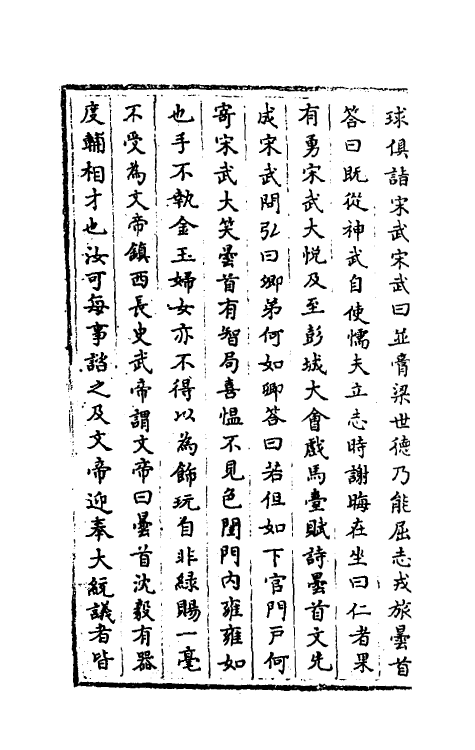 球俱詣宋武宋武曰並膏粱世德乃能屈志戎旅曇首
答曰既從神武自使懦夫立志時謝晦在坐曰仁者果
有勇宋武大悅及至彭城大會戲馬臺賦詩曇首文先
成宋武問弘曰卿弟何如卿答曰若但如下官門戸何
寄宋武大笑曇首有智局喜愠不見色閨門内雍雍如
也手不執金玉婦女亦不得以為飾玩自非緑賜一毫
不受為文帝鎮西長史武帝謂文帝曰曇首沈毅有器
度輔相才也汝可每事諮之及文帝迎奉大統議者皆